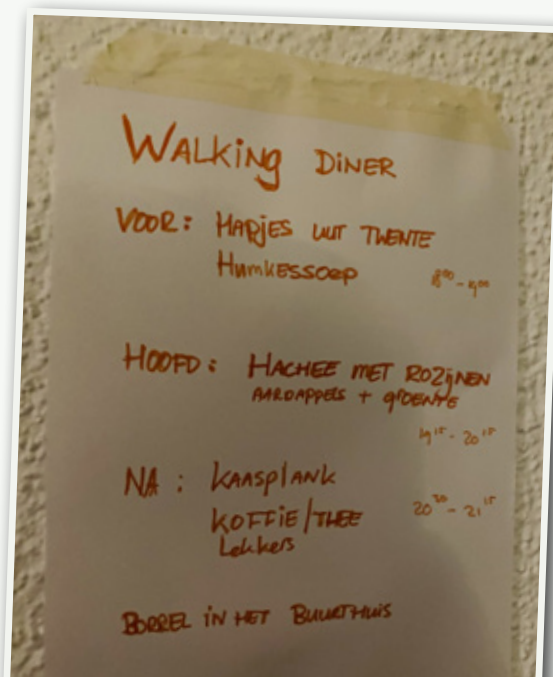 WALKiNg DiNER
VOOR: HAPjES UUT TWENTE
HumkESSOEP 18⁰⁰ - 19⁰⁰
HOOFD: HACHEE MET ROZijNEN
AARDAPPELS + gROENTE
19¹⁵ - 20¹⁵
NA: KAASplANK
KOFFiE/THEE 20³⁰ - 21¹⁵
LekkeRs
BORREL iN HET BUURTHUiS